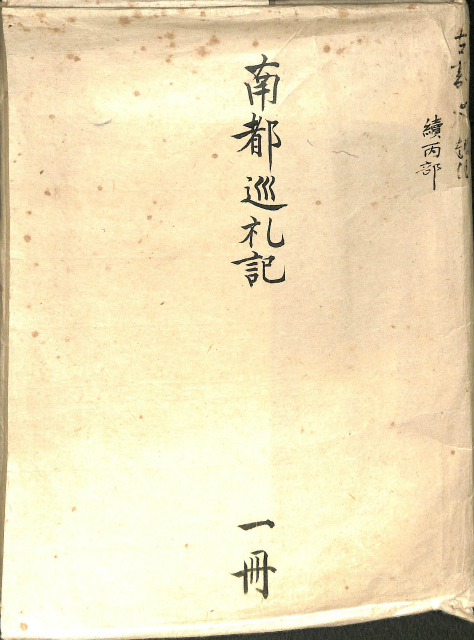 續丙部
南都巡礼記
一冊